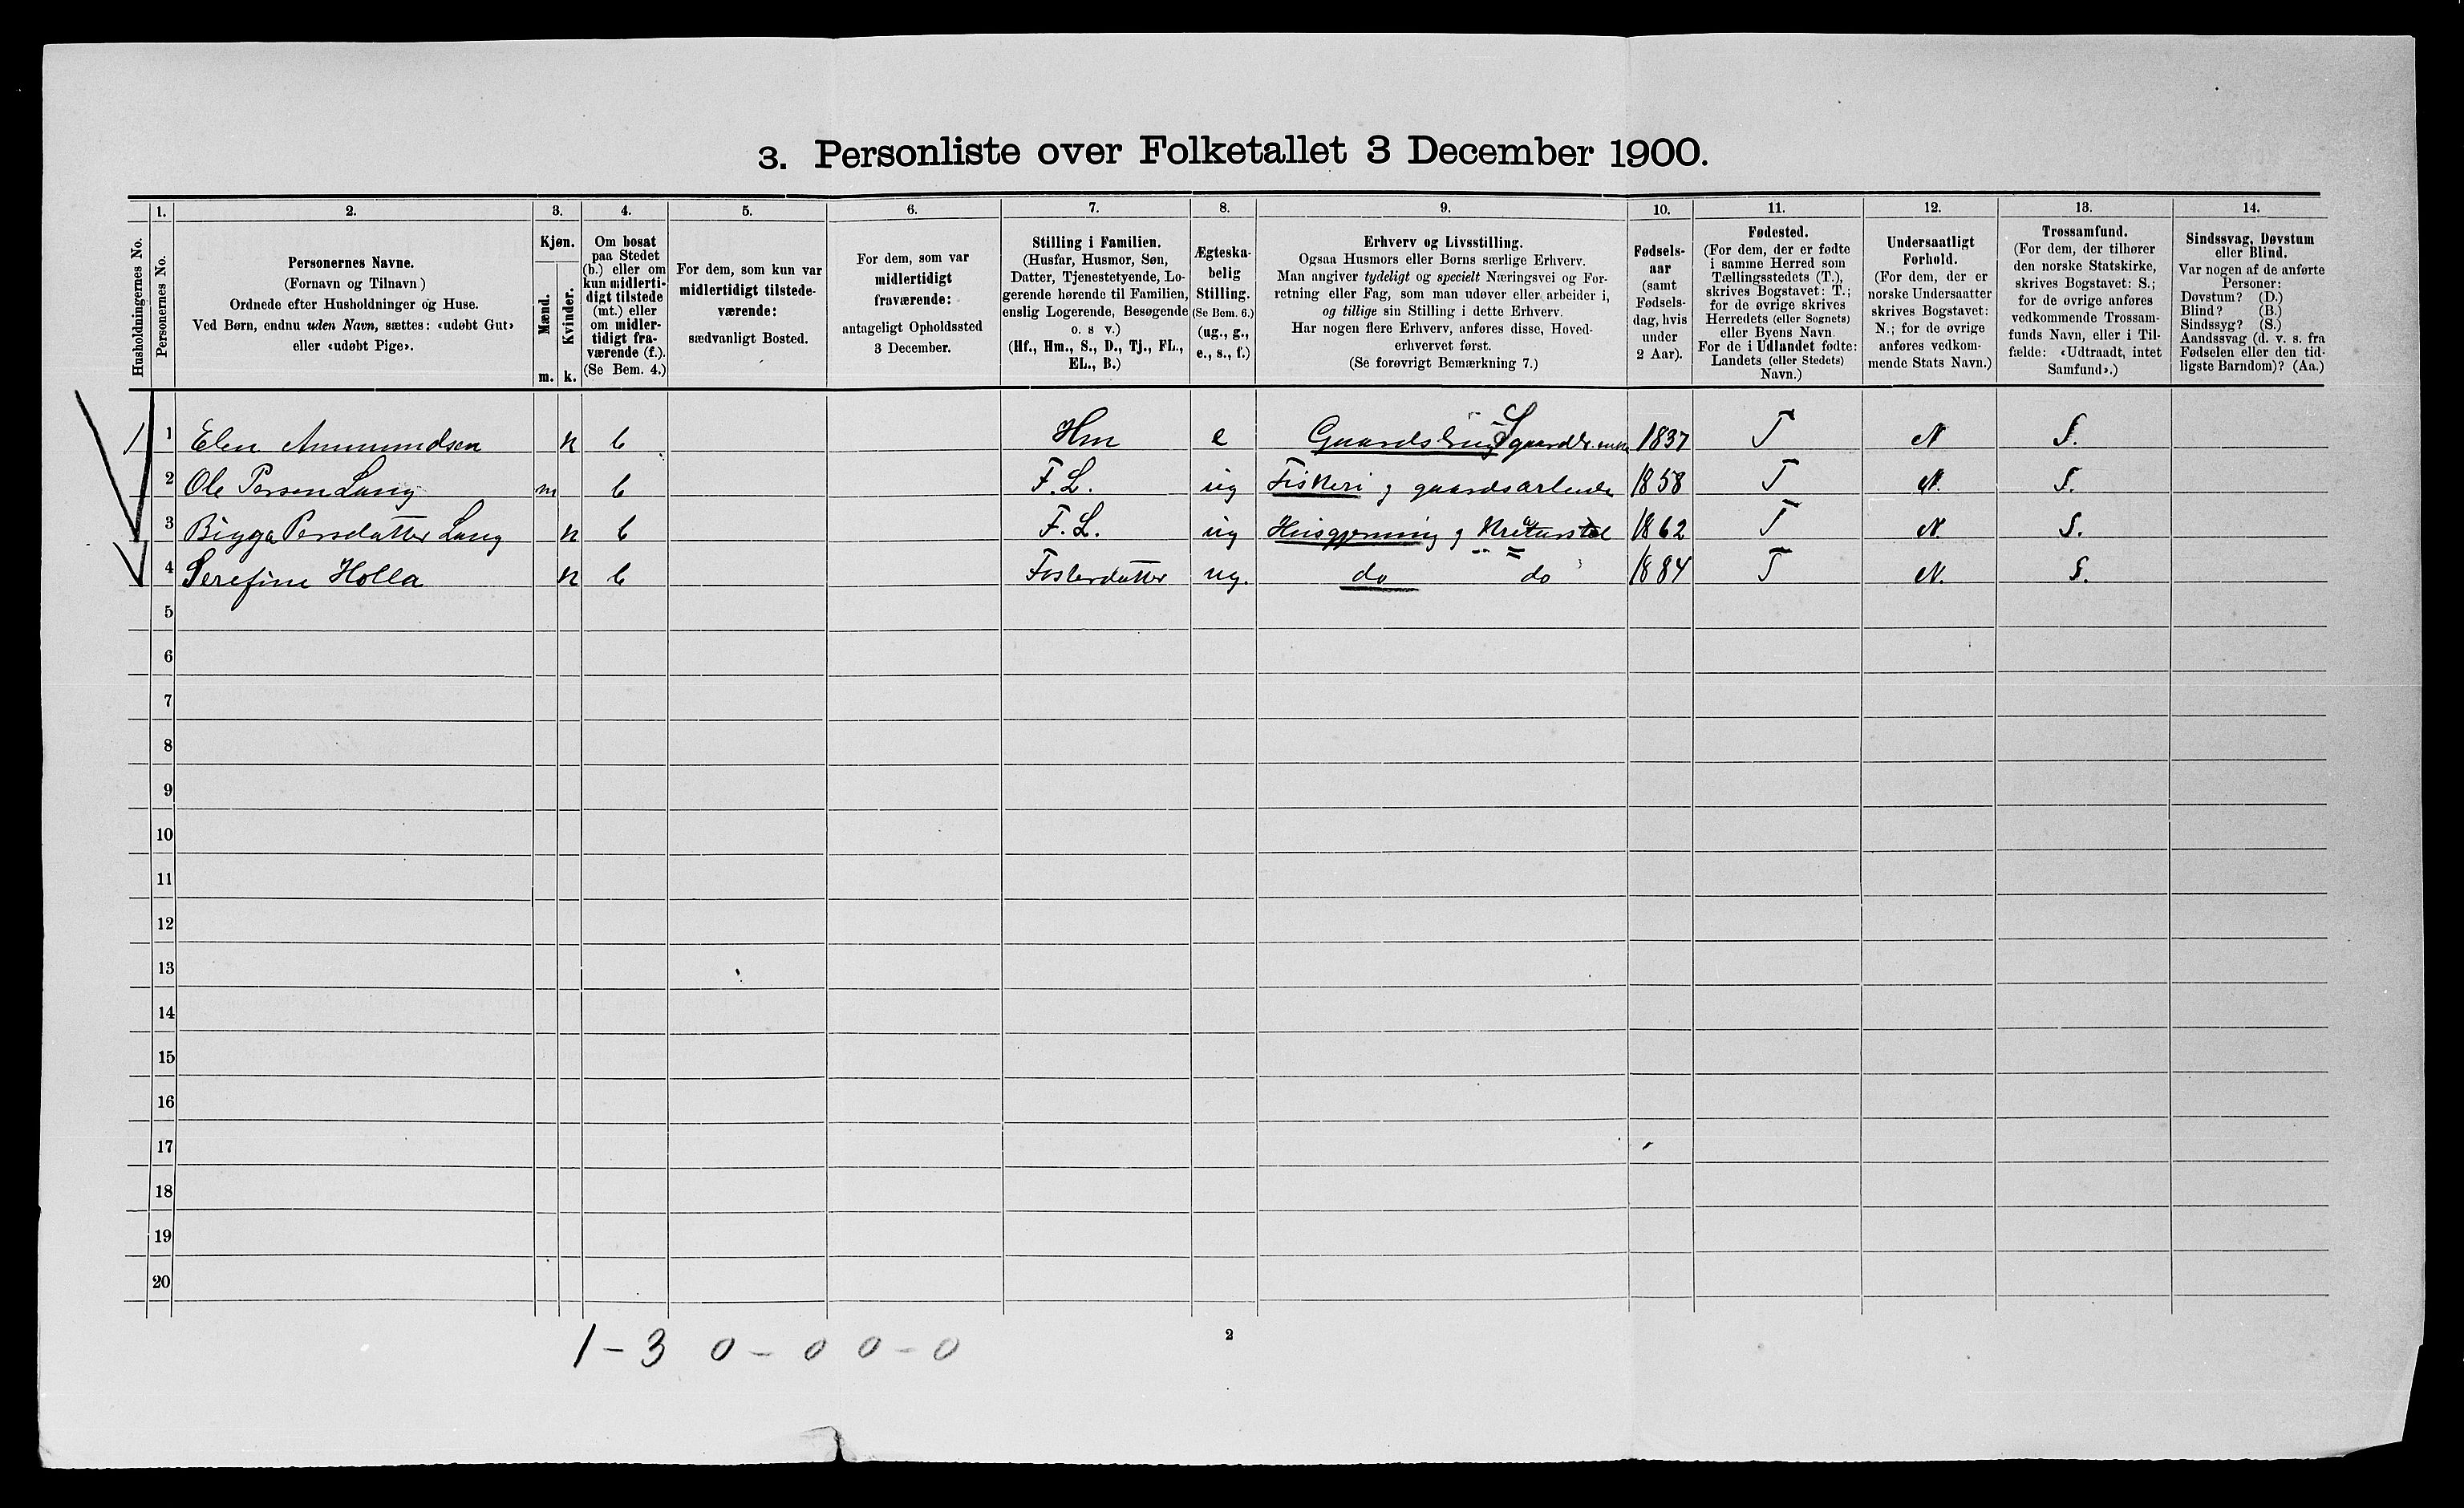 3. Personliste over Folketallet 3 December 1900.
1. 2. 3. 4. 5. 6. 7. 8. 9. 10. 11. 12. 13. 14.
Husholdningernes No.
Personernes No.
Personernes Navne.
(Fornavn og Tilnavn)
Ordnede efter Husholdninger og Huse.
Ved Børn, endnu uden Navn, sættes: «udøbt Gut»
eller «udøbt Pige».
Kjøn.
Mænd.
Kvinder.
m. k.
Om bosat
paa Stedet
(b.) eller om
kun midlerti-
digt tilstede
(mt.) eller
om midler-
tidigt fra-
værende (f.).
(Se Bem. 4.)
For dem, som kun var
midlertidigt tilstede-
værende:
sædvanligt Bosted.
For dem, som var
midlertidigt
fraværende:
antageligt Opholdssted
3 December.
Stilling i Familien.
(Husfar, Husmor, Søn,
Datter, Tjenestetyende, Lo-
gerende hørende til Familien,
enslig Logerende, Besøgende
o. s v.)
(Hf., Hm., S., D., Tj., FL.,
EL., B.)
Ægteska-
belig
Stilling.
(Se Bem. 6.)
(ug., g.,
e., s., f.)
Erhverv og Livsstilling.
Ogsaa Husmors eller Børns særlige Erhverv.
Man angiver tydeligt og specielt Næringsvei og For-
retning eller Fag, som man udøver eller arbeider i,
og tillige sin Stilling i dette Erhverv.
Har nogen flere Erhverv, anføres disse, Hoved-
erhvervet først.
(Se forøvrigt Bemærkning 7.)
Fødsels-
aar
(samt
Fødsels-
dag, hvis
under
2 Aar).
Fødested.
(For dem, der er fødte
i samme Herred som
Tællingsstedets (T.),
skrives Bogstavet: T.;
for de øvrige skrives
Herredets (eller Sognets)
eller Byens Navn
For de i Udlandet fødte:
Landets (eller Stedets)
Navn.)
Undersaatligt
Forhold.
(For dem, der er
norske Undersaatter
skrives Bogstavet:
N.; for de øvrige
anføres vedkom-
mende Stats Navn.)
Trossamfund.
(For dem, der tilhører
den norske Statskirke,
skrives Bogstavet: S.;
for de øvrige anføres
vedkommende Trossam-
funds Navn, eller i Til-
fælde: «Udtraadt, intet
Samfund».)
Sindssvag, Døvstum
eller Blind.
Var nogen af de anførte
Personer:
Døvstum? (D.)
Blind? (B.)
Sindssyg? (S.)
Aandssvag (d. v. s. fra
Fødselen eller den tid-
ligste Barndom)? (Aa.)
1 1 Elen Ammundsen k b Hm e Gaardsbrug S gaardbr. enke 1837 T N S.
2 Ole Persen Lang m b F.L. ug Fiskeri g gaardsarbeide 1858 T N. S.
3 Bigga Persdatter Lang k b F.L. ug Husgjerning g Kreaturstel 1862 T N. S.
4 Serefine Holla k b Fosterdatter ug. do do 1884 T N. S.
5
6
7
8
9
10
11
12
13
14
15
16
17
18
19
20
1 - 3 0 - 0 0 - 0
2